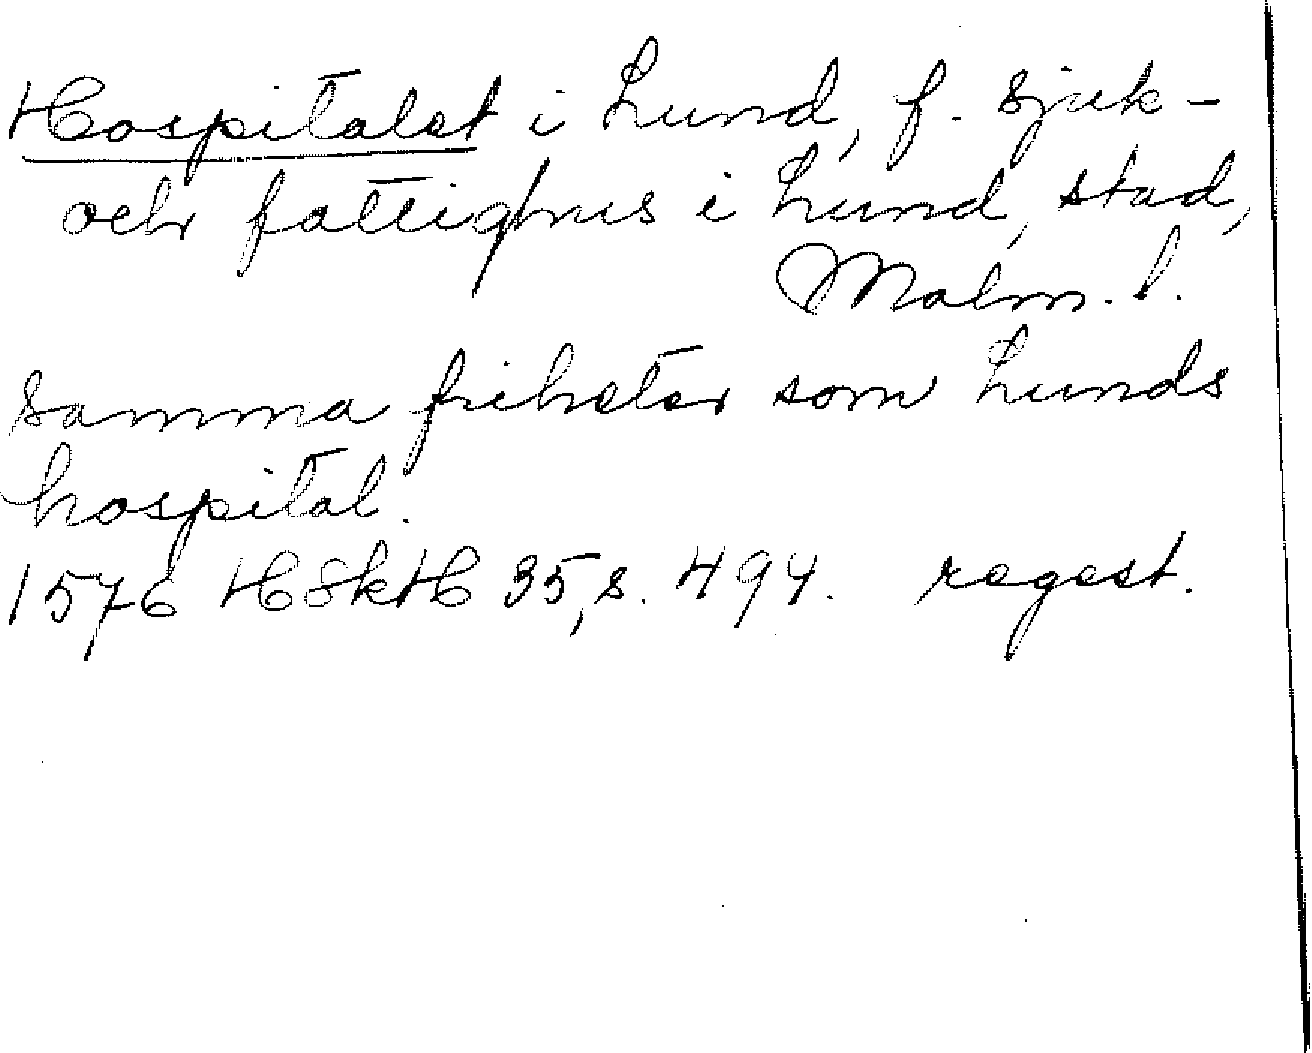 Hospitalet i Lund, f. sjuk-
och fattighus i Lund, stad,
Malm. l.
samma friheter som Lunds
hospital.
1576 HSkH 35, s. 494. regest.